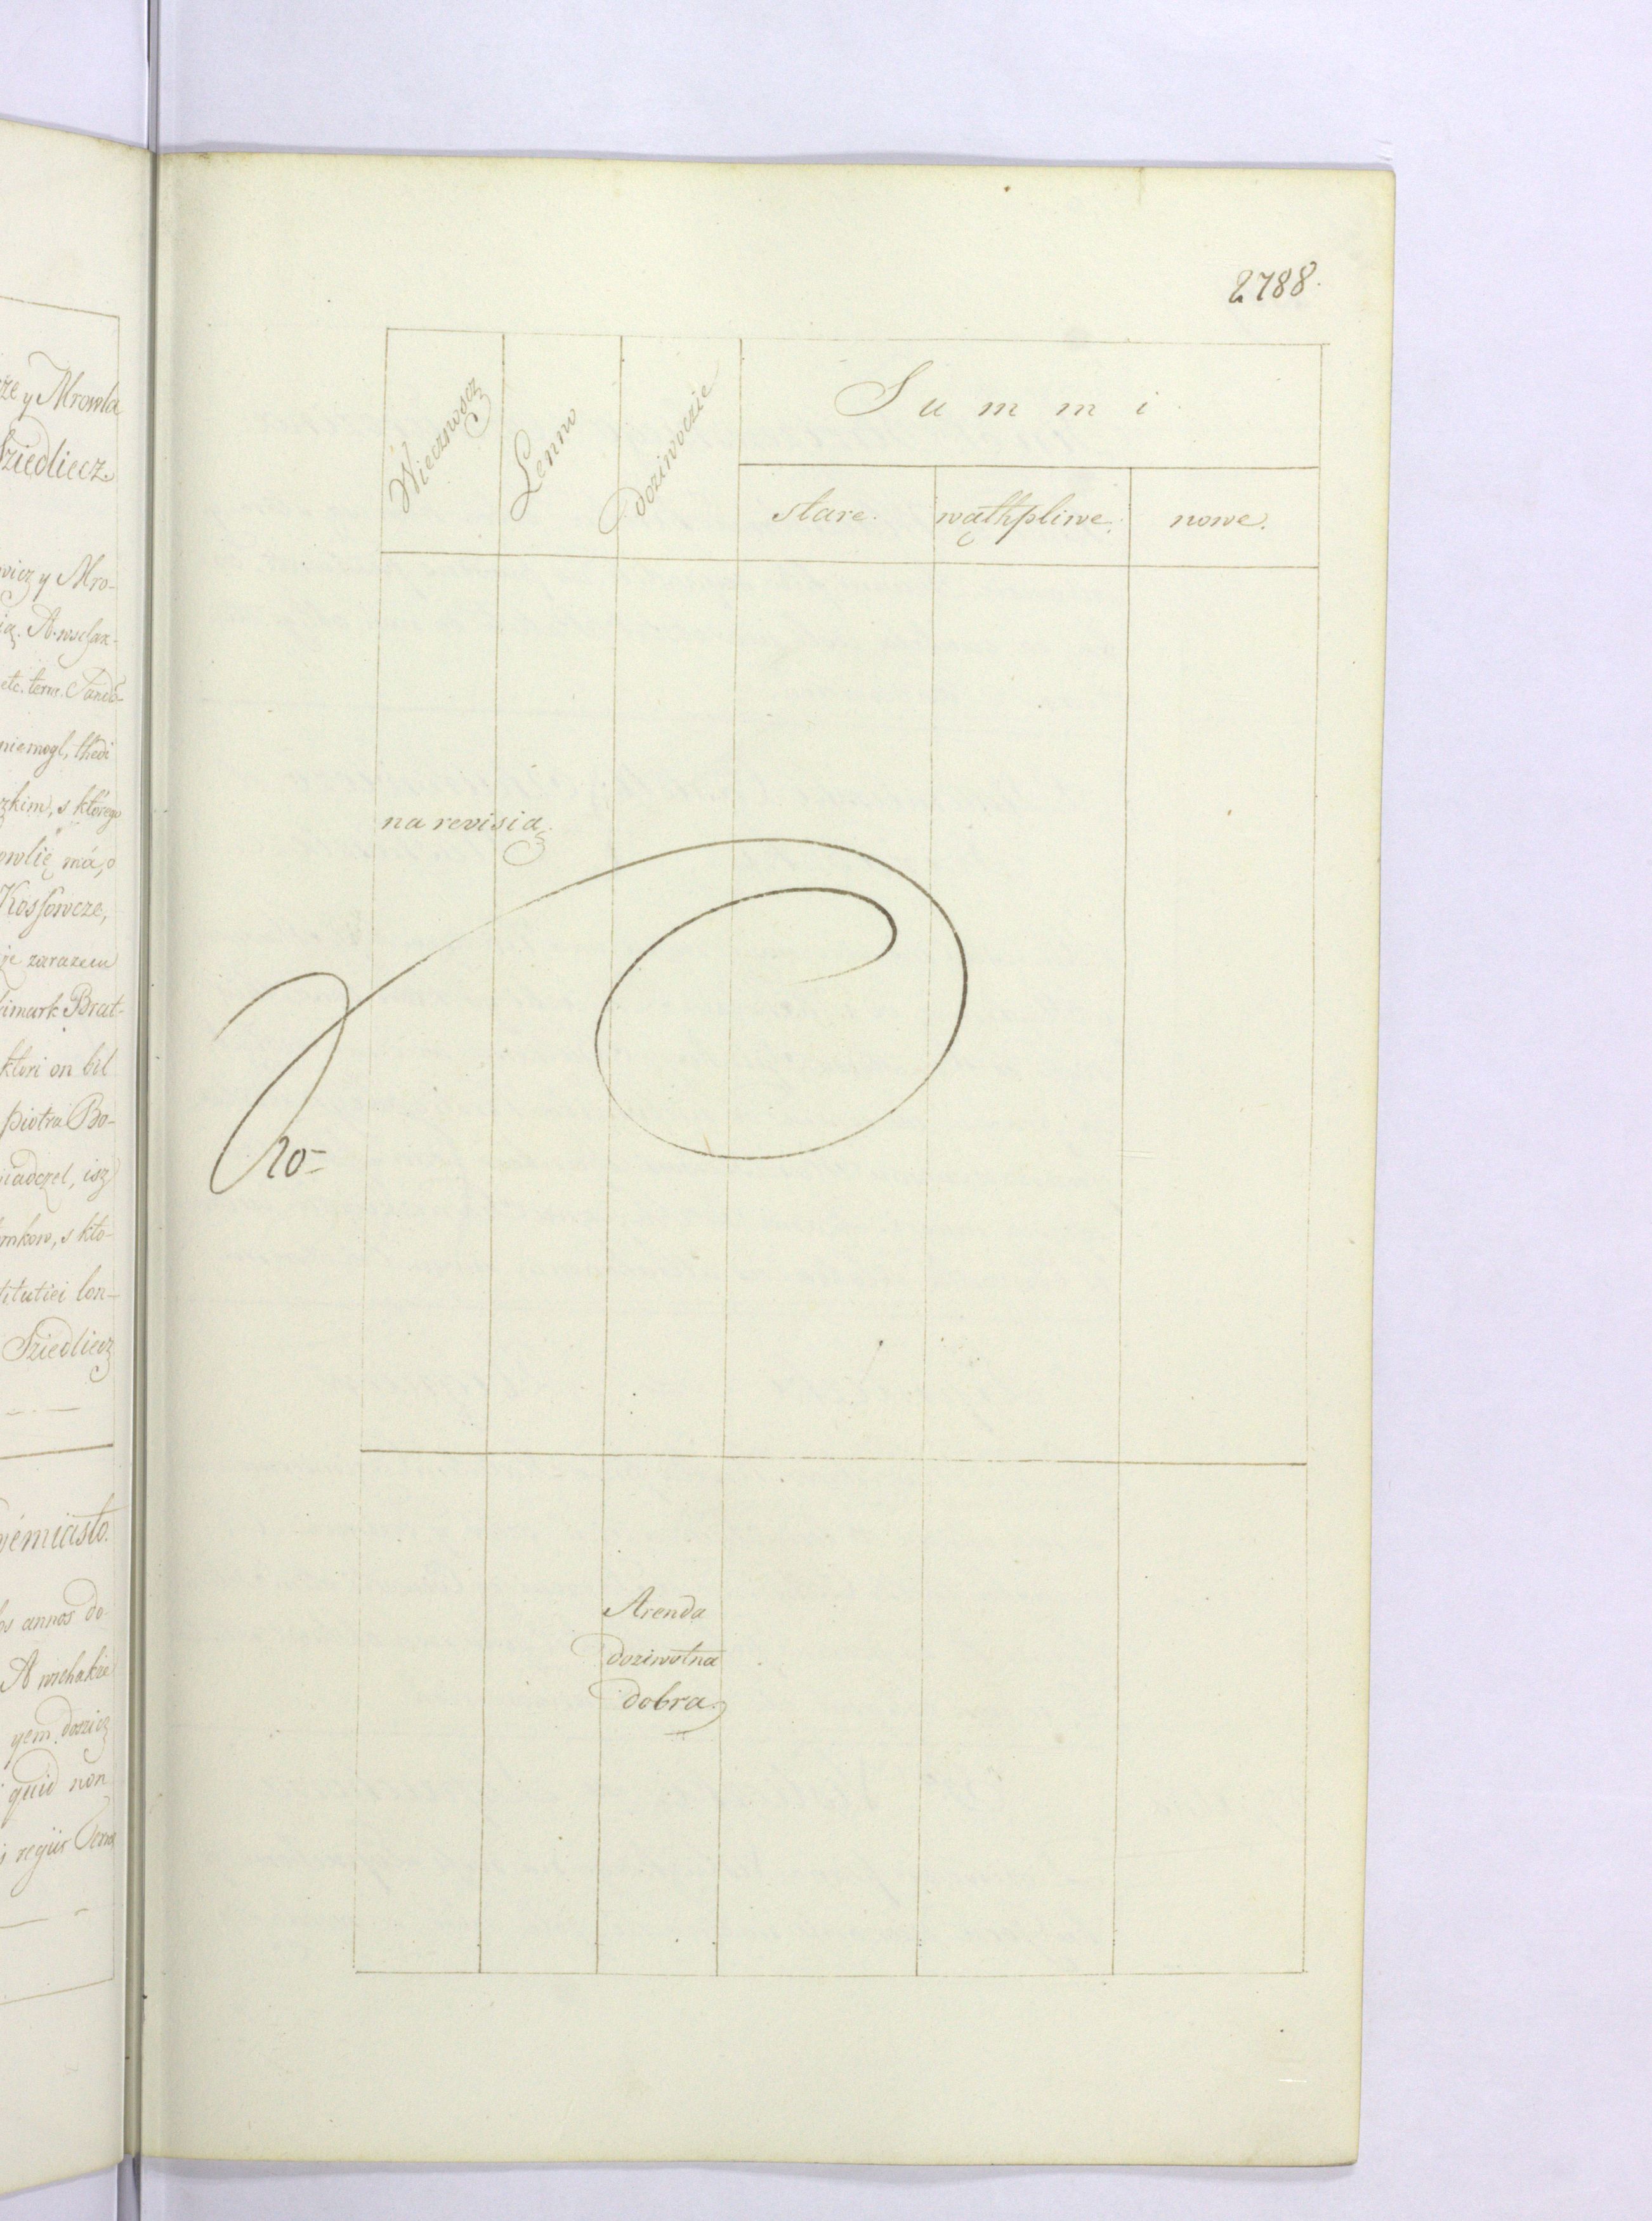 ze y Mrowla
Sziedliecz.
wicz y Mro-
etc. terre. Sando-
niemogl, thedi
zkim, s którego
owlię má, o
Kossowcze,
ie zarazem
imark Brat-
ktori on bil
piotra Bo-
iadczel, isz
mkow, s kto-
titutiei lon-
Sziedliecz
iémiasto.
os annos do-
A wschakże
yem dozicz
quid non
regiis Terre
2788.
Wiecznoscz
Lenno
Doziwoczie
Summi
stare.
wąthpliwe.
nowe.
na revisią.
Arenda
doziwotna
dobra.